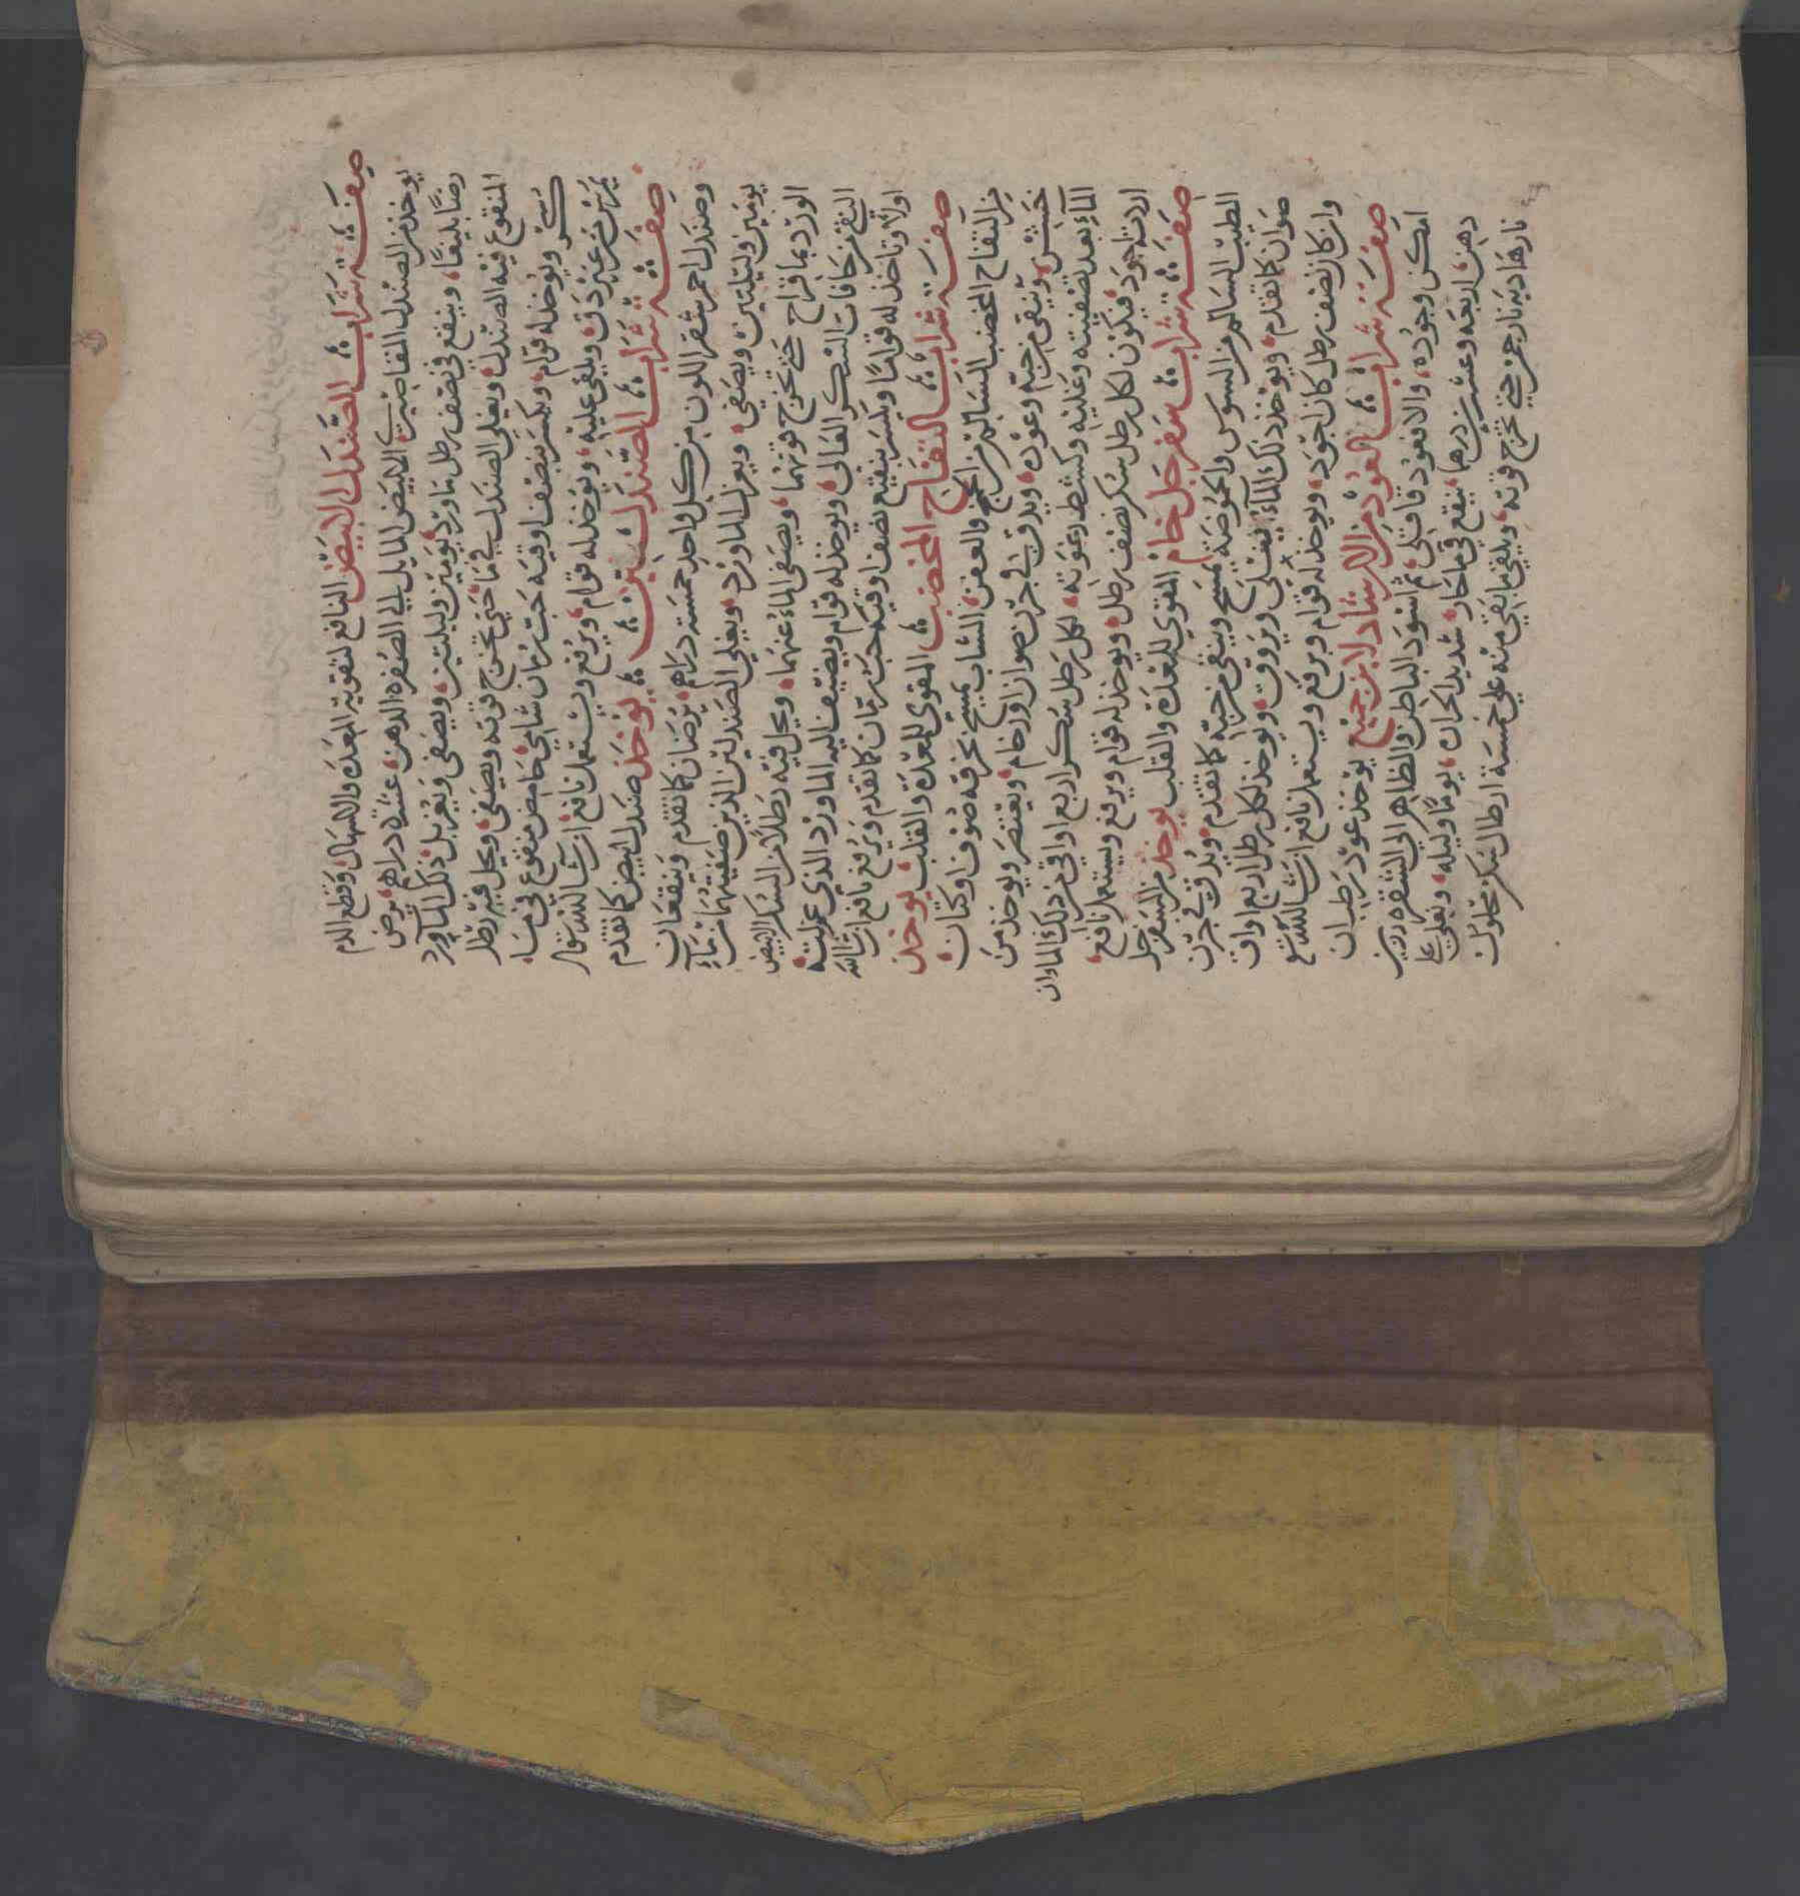 صفة شراب الصندل الابيض النافع لتقوية المعدة والاسهال وقطع الدم
يوخذ من الصندل المقاصيري الابيض المايل الي الصفرة الدهن عشرة دراهم يرض
رضًا بليغًا وينقع في نصف رطل ماورد يومين وليلتين ويصفى ويعزل ذلك الماورد
المنقوع فيه الصندل ويغلي الصندل في ما حتي تخرج قوته ويصفى ويحل فيه رطل
سكر ويوخذ له قوام ويكسر بنصف اوقية حب رمان شامي حامض منقوع في ماء
يمرس من غير دق ويلقى عليه ويوخذ له قوام ويرفع ويستعمل نافع ان شا الله تعالى
صفة شراب الصندلين يوخذ صندل ابيض كما تقدم
وصندل احمر شقر اللون من كل واحد خمسة دراهم يرضان كما تقدم وينقعان
يومين وليلتين ويصفى ويعزل الماورد ويغلي الصندلين الذين صفيتهما من ماء
الورد بما قراح حتي تخرج قوتهما ويصفى الماء عنهما ويحل فيه رطلا من السكر الابيض
النقي من خافات السكر العالى ويوخذ له قوام ويضيف اليه الماورد الذي عزلته
اولا وتاخذ له قوامًا ويكسر بنقيع نصف اوقية حب رمان كما تقدم ويرفع نافع ان شا الله
صفة شراب التفاح المخضب المقوي للمعدة والقلب يوخذ
من التفاح المخضب السالم من الفج والعفن الشاب يمسح بخرقة صوف او كتان
خشن وينقى من حبه وعوده ويدق في جرن صوان او رخام ويعتصر ويوخذ من
الماء بعد تصفيته وغليه وكشط رغوته لكل رطل سكر اربع اواقي من ذلك الماء وان
اردته اجود فيكون لكل رطل سكر نصف رطل ويوخذ له قوام ويرفع ويستعمل نافع
صفة شراب سفرجل خام المقوي للمعدة والقلب يوخذ من السفرجل
الطيب السالم من السوس والحموضة يمسح وينقى من حبه كما تقدم ويدق في جرن
صوان كما تقدم ويوخذ ذلك الماء يغلى ويروق ويوخذ لكل رطل اربع اواق
وان كان نصف رطل كان اجود ويوخذ له قوام ويرفع ويستعمل نافع ان شا الله تع
صفة شراب العود من الارشاد لابن جميع يوخذ عود رطب ان
امكن وجوده والا فعود قاقلي اسود الباطن والظاهر الي الشقرة رزين
دهن اربعة وعشرين درهما ينقع في ما حار شديد الحرارة يومًا وليلة ويغلي علي
نار هادية نار جمر حتي تخرج قوته ويلقي ما بقي منه علي خمسة ارطال سكر محلول